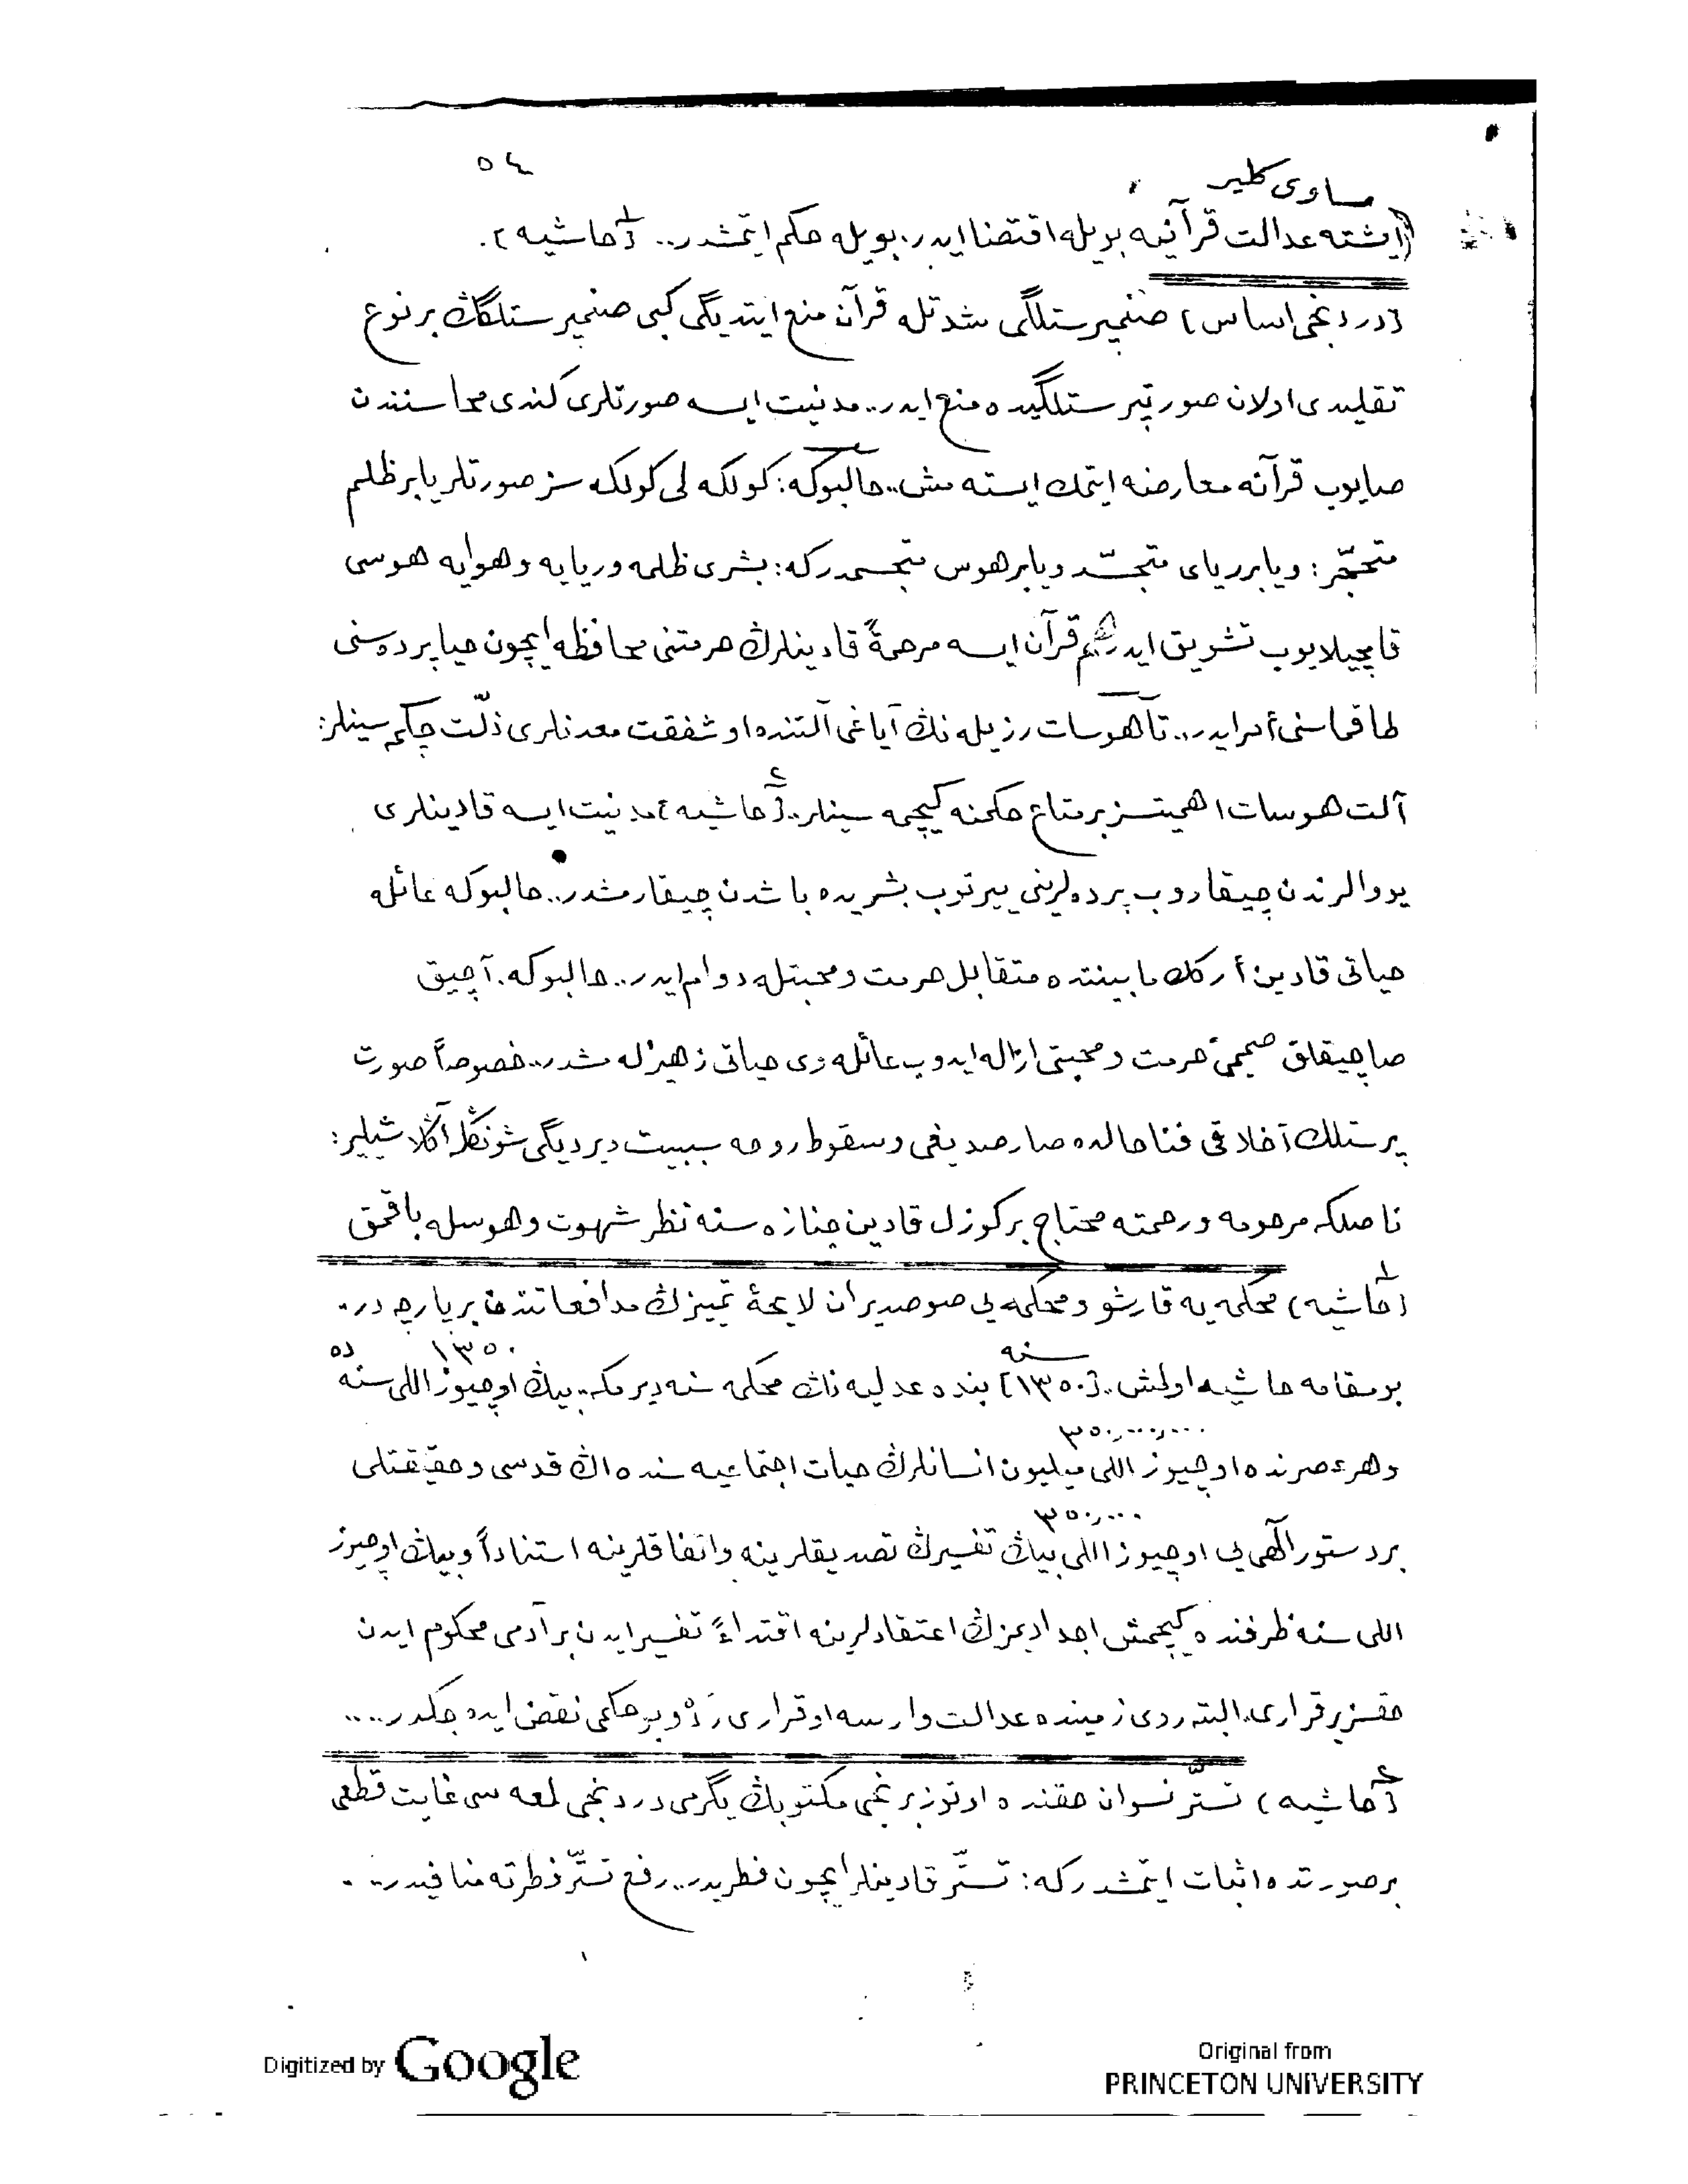 ٥٤
مساوی كلير
(ايشته عدالت قرآنيه بويله اقتضا ايدر، بويله حكم ايتمشدر.. [حاشيه ١].
[دردنجی اساس] صنمپرستلگی شدتله قرآن منع ايتديگی كبی صنمپرستلگڭ بر نوع
تقليدی اولان صورتپرستلگيده منع ايدر.. مدنيت ايسه صورتلری كندی محاسنندن
صايوب قرآنه معارضه ايتمك ايسته مش.. حالبوكه: كولگه لی كولگه سز صورتلر يا بر ظلم
متحجّر: ويا بر ريای متجسّد ويا بر هوس متجسمدركه: بشری ظلمه وريايه وهوايه هوسی
قامچيلايوب تشويق ايدر هم قرآن ايسه مرحمةً قادينلرڭ حرمتنی محافظه ايچون حيا پرده سنی
طاقماسنی أمر ايدر.. تا هوسات رزيله نڭ آياغی آلتنده او شفقت معدنلری ذلّت چكمه سينلر:
آلت هوسات اهميتسز بر متاع حكمنه كيچمه سينلر.. [حاشيه ٢] مدنيت ايسه قادينلری
يووالرندن چيقاروب پرده لرينی ييرتوب بشريده باشدن چيقارمشدر.. حالبوكه عائله
حياتی قادين أركك مابيننده متقابل حرمت ومحبتله دوام ايدر.. حالبوكه. آچيق
صاچيقلق صميمی حرمت ومحبتی ازاله ايدوب عائله وی حياتی زهيرله مشدر.. خصوصاً صورت
پرستلك أخلاقی فنا حالده صارصديغی وسقوط روحه سببيت ويرديگی شونڭله آڭلاشيلير:
ناصلكه مرحومه ورحمته محتاج بر كوزل قادين جنازه سنه نظر شهوت وهوسله باقمق
[حاشيه ١] محكمه يه قارشو ومحكمه يی صوصديران لايحۀ تمييزڭ مدافعاتندن بر پارچه در..
سنه ١٣٥٠ ده
بو مقامه حاشيه اولمش.. [١٣٥٠] بنده عدليه نڭ محكمه سنه ديرمكه.. بيڭ اوچيوز اللی سنه
٣٥٠,٠٠٠,٠٠٠
وهر عصرنده اوچيوز اللی ميليون انسانلرڭ حيات اجتماعيه سنده اڭ قدسی وحقيقتلی
٣٥٠,٠٠٠
بر دستور الٓهی يی اوچيوز اللی بيڭ تفسيرڭ تصديقلرينه واتفاقلرينه استناداً وبيڭ اوچيوز
اللی سنه ظرفنده كيچمش اجداديمزڭ اعتقادلرينه اقتداءً تفسير ايدن بر آدمی محكوم ايدن
حقسز بر قراری. البته روی زمينده عدالت وارسه او قراری ردّ و بو حكمی نقض ايده جكدر....
[حاشيه ٢] تستّر نسوان حقنده اوتوز برنجی مكتوبڭ يگرمی دردنجی لمعه سی غايت قطعی
بر صورتده اثبات ايتمشدركه: تستّر قادينلر ايچون فطريدر.. رفع تستّر فطرته منافيدر..
Digitized by Google
Original from
PRINCETON UNIVERSITY